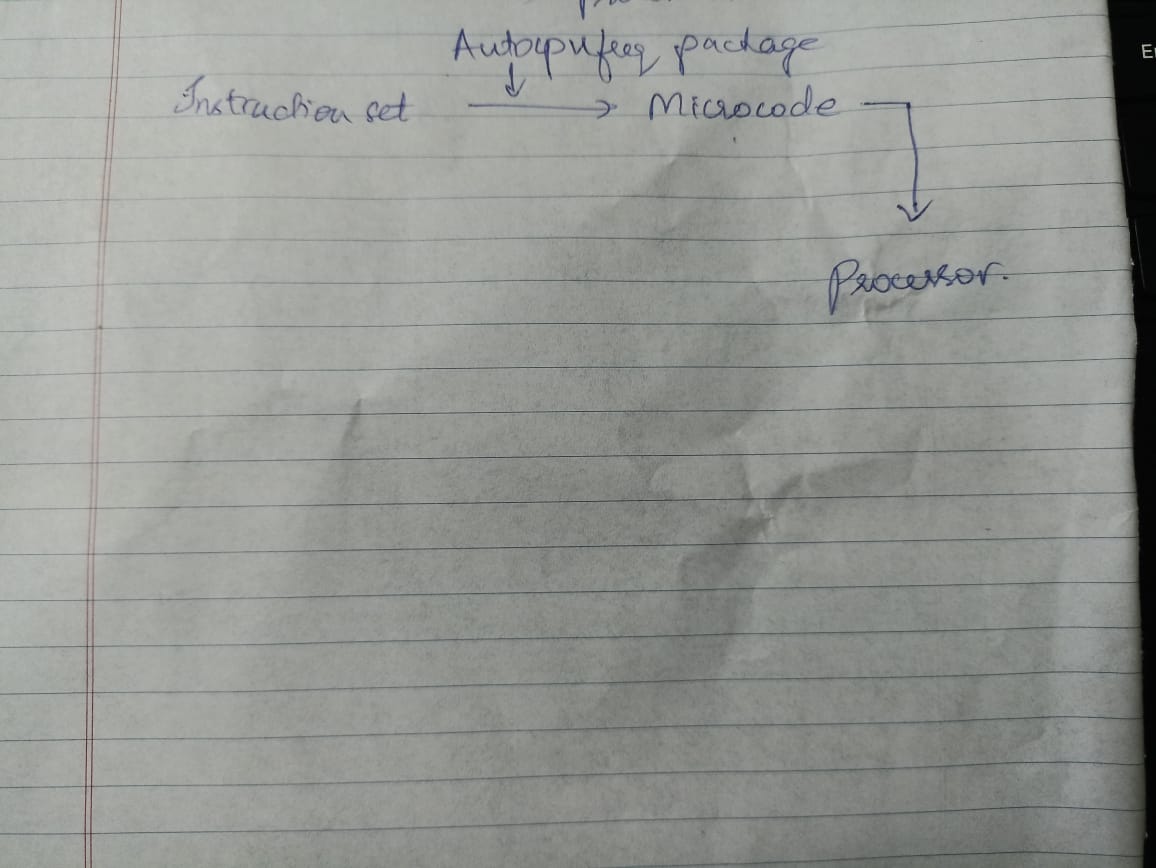 Autocpufreq package
Instruction set → Microcode
Processor.